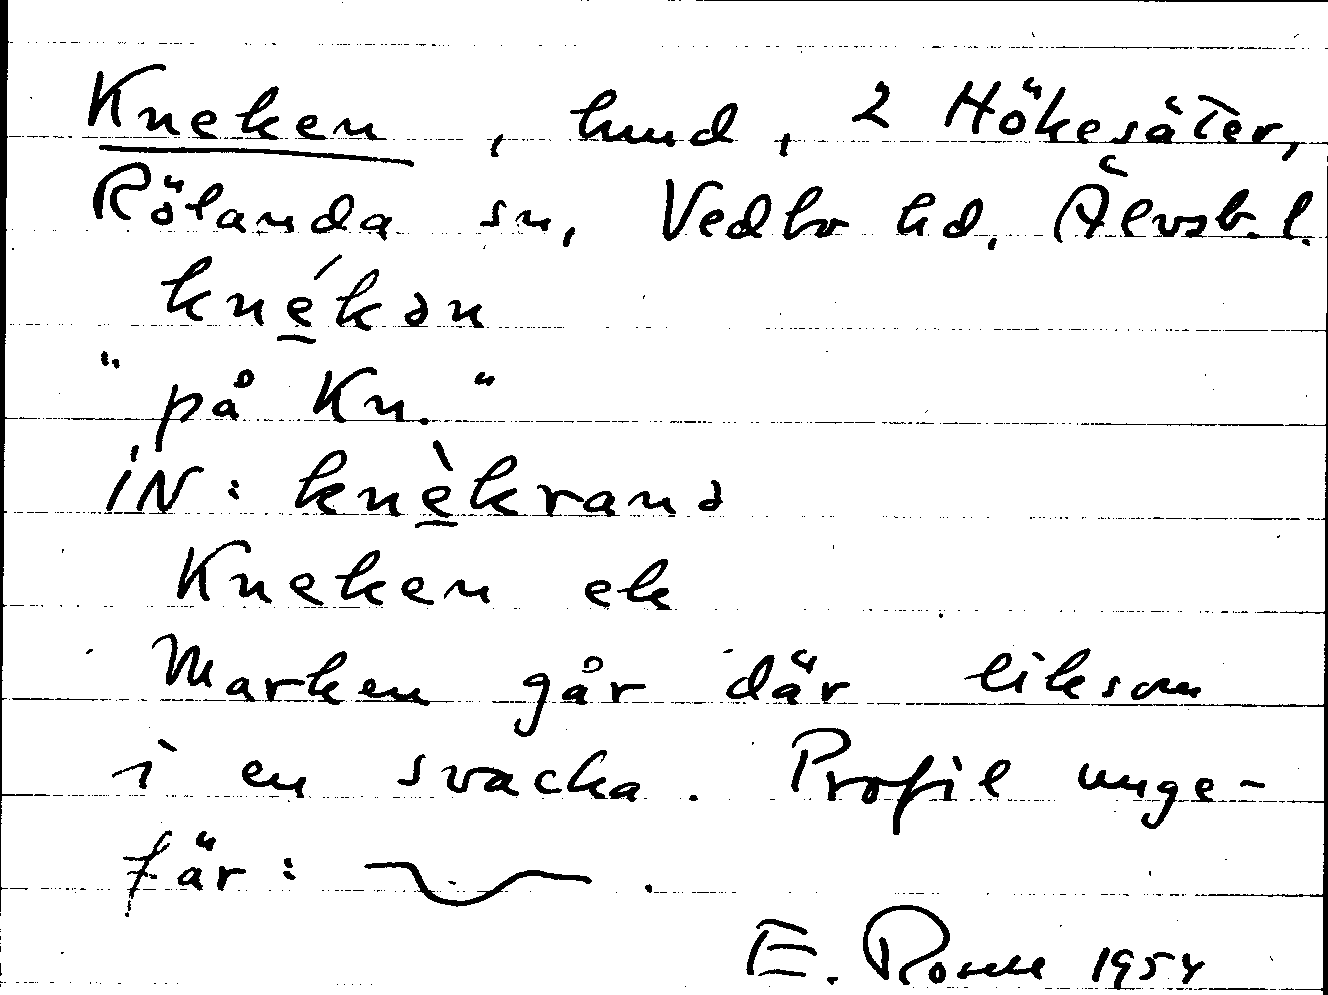 Kneken, hund, 2 Hökesäter,
Rölanda sn, Vedbo hd. Älvsb. l.
kné̲kən
"på Kn."
iN: knè̲kranə
Kneken ek
Marken går där liksom
i en svacka. Profil unge-
fär: .
E. 1954